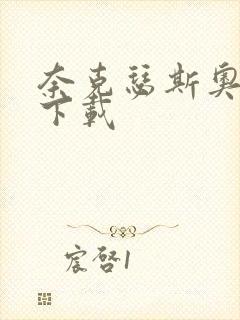 奈克瑟斯奥
下载
宸启1